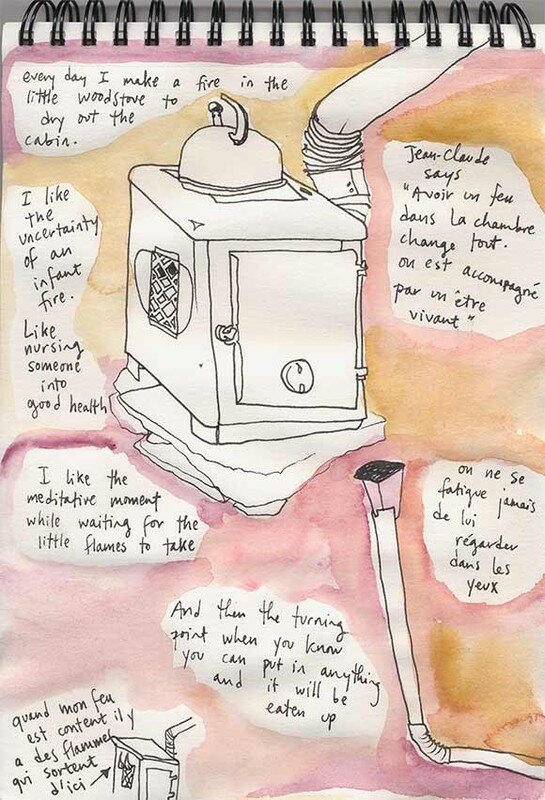 every day I make a fire in the
little woodstove to
dry out the
cabin.
I like
the
uncertainty
of an
infant
fire.
Like
nursing
someone
into
good health
Jean-Claude
says
"Avoir un feu
dans la chambre
change tout.
on est accompagné
par un être
vivant"
I like the
meditative moment
while waiting for the
little flames to take
on ne se
fatigue jamais
de lui
régarder
dans les
yeux
And then the turning
point when you know
you can put in anything
and it will be
eaten up
quand mon feu
est content il y
a des flammes
qui sortent
d'ici